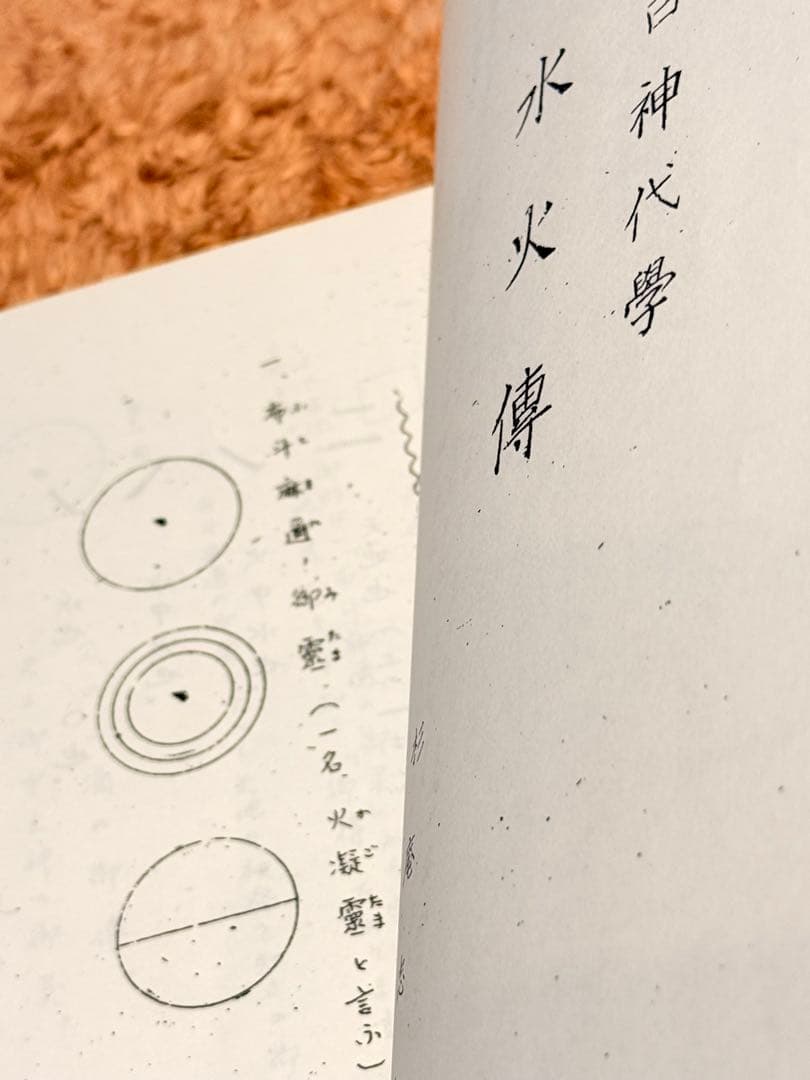 神代學
水火傳
杉庵
一、布斗麻邇御靈(一名火凝靈と言ふ)